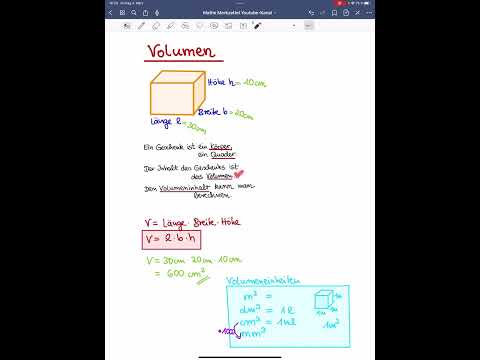 Mathe Merkzettel Youtube-Kanal
Volumen
Höhe h = 10cm
Breite b = 20cm
Länge l = 30cm
Ein Geschenk ist ein Körper,
ein Quader
Der Inhalt des Geschenks ist
das Volumen
Den Volumeninhalt kann man
berechnen
V = Länge · Breite · Höhe
V = l · b · h
V = 30cm · 20cm · 10cm
= 600 cm³
Volumeneinheiten
m³ =
dm³ = 1l
cm³ = 1ml
mm³
1m
1m
1m
1m³